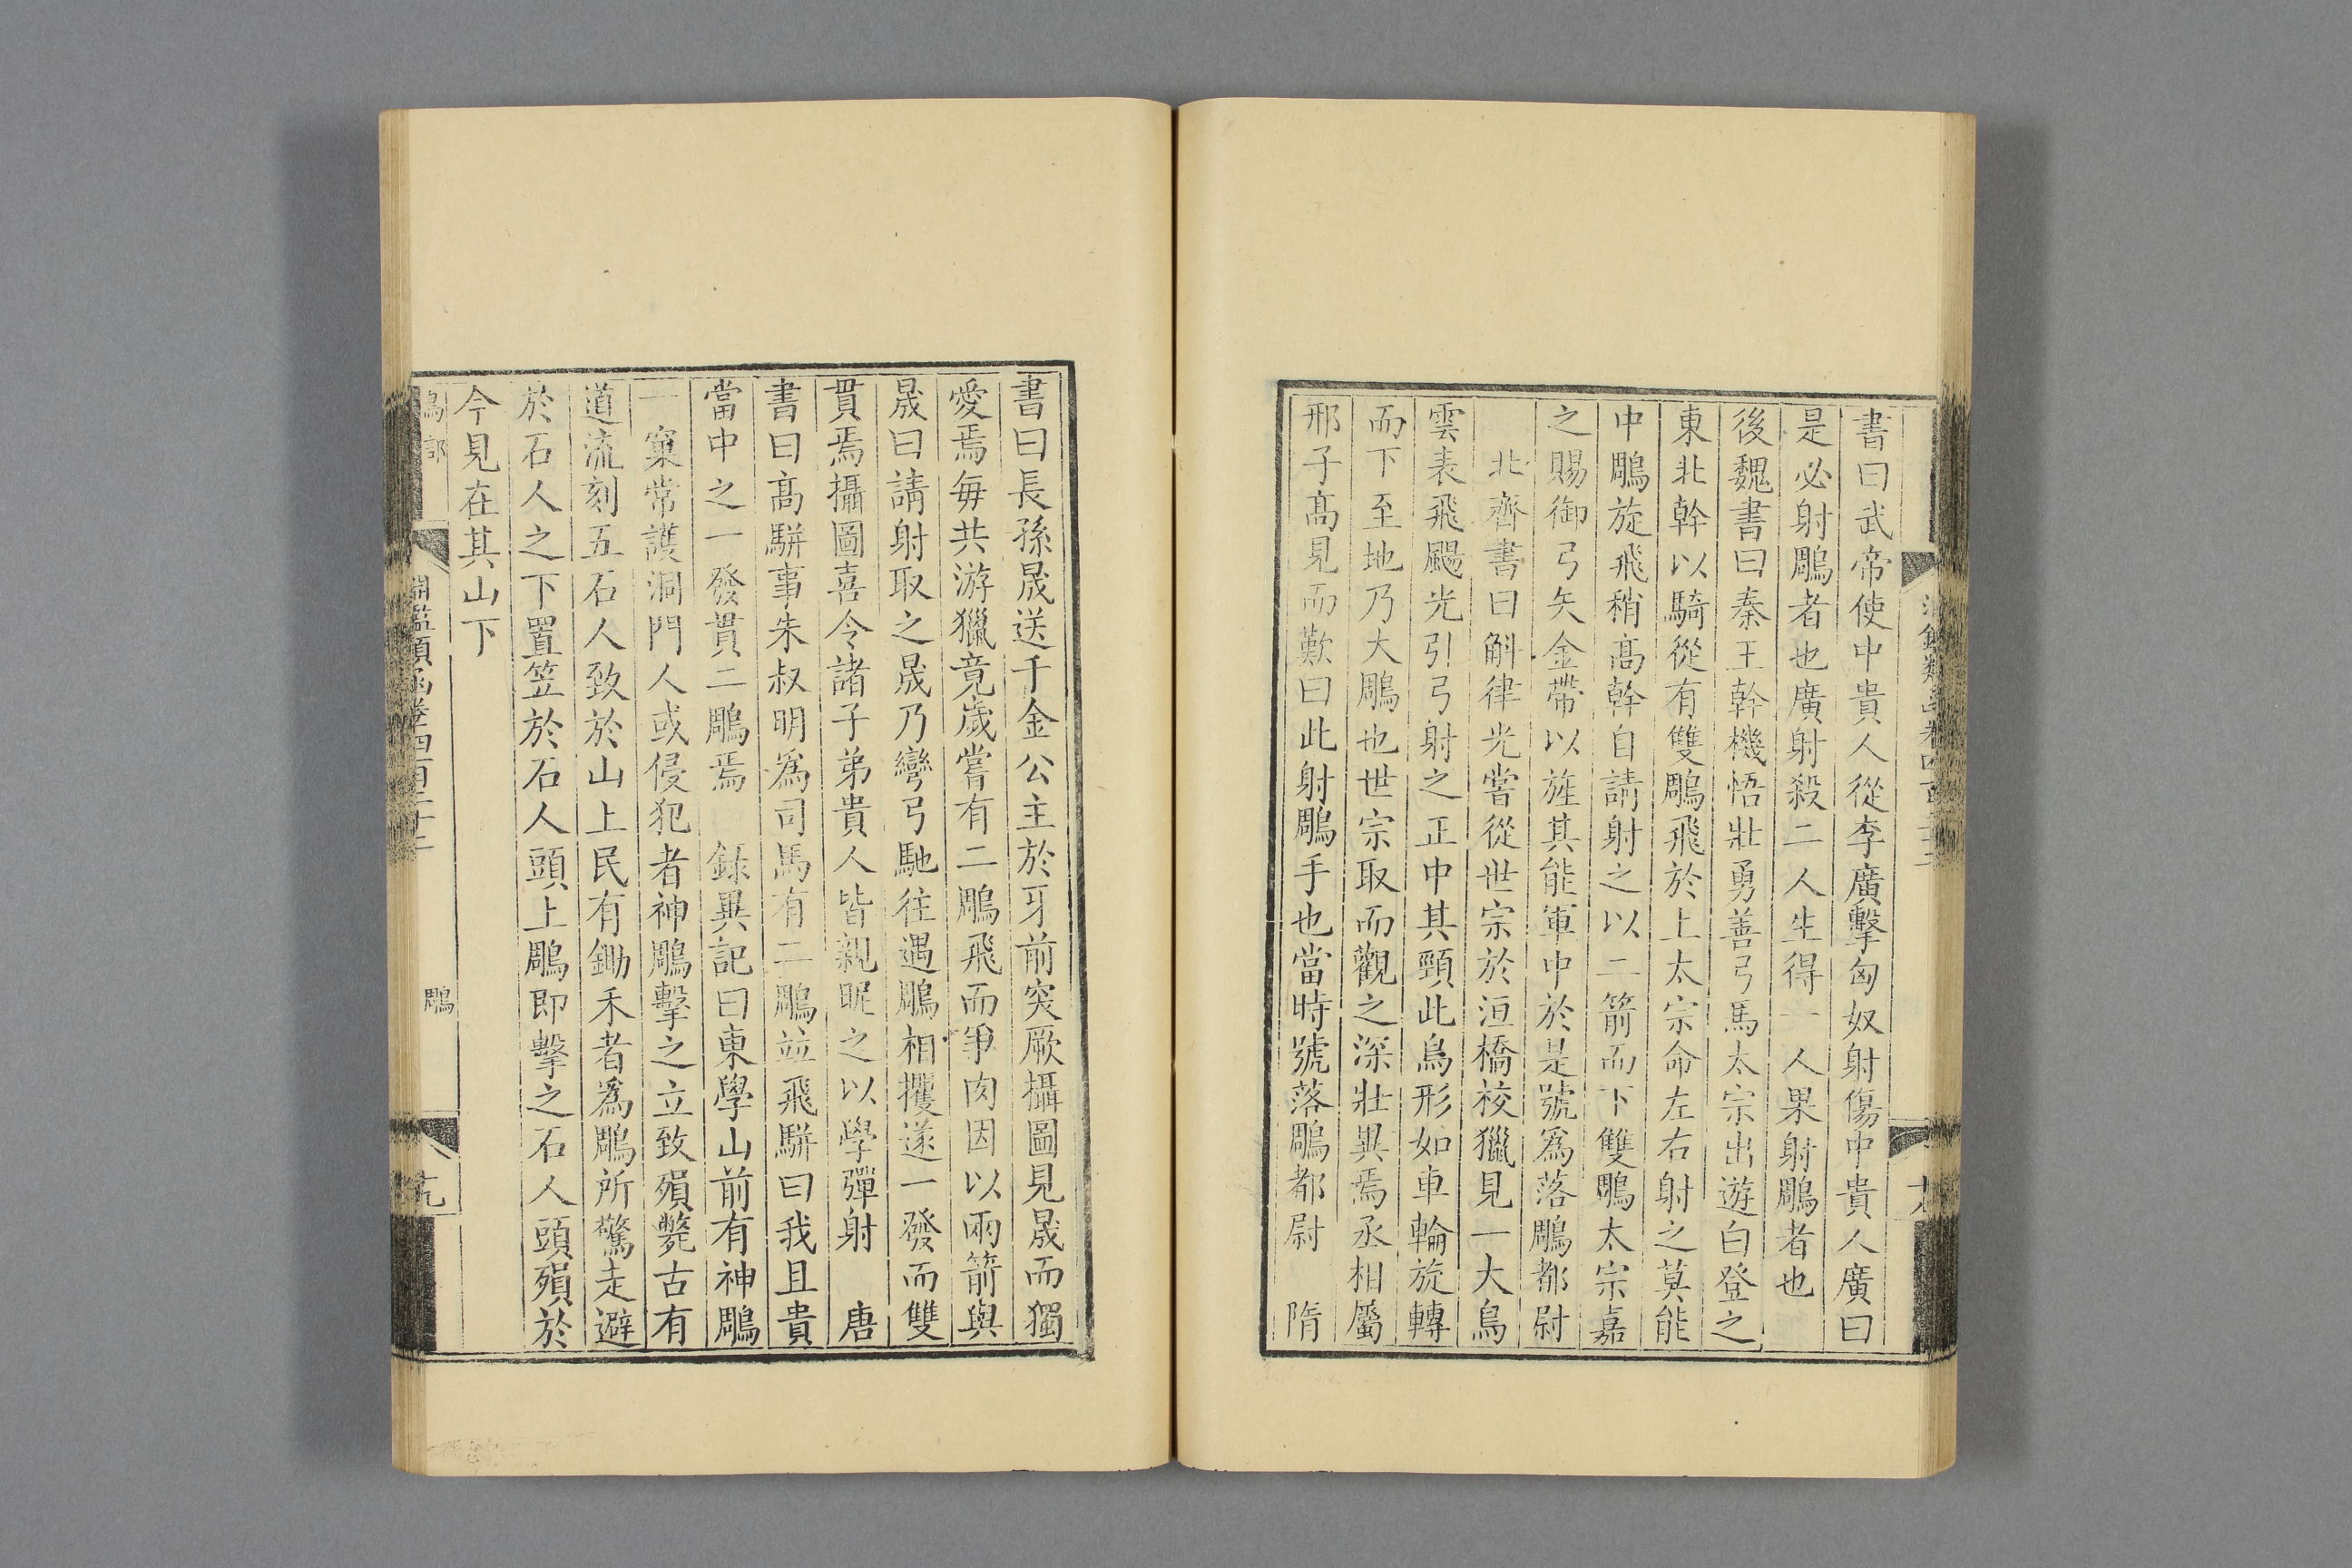 書曰武帝使中貴人從李廣擊匈奴射傷中貴人廣曰
是必射鵰者也廣射殺二人生得一人果射鵰者也
後魏書曰秦王幹機悟壯勇善弓馬太宗出遊白登之
東北幹以騎從有雙鵰飛於上太宗命左右射之莫能
中鵰旋飛稍髙幹自請射之以二箭而下雙鵰太宗嘉
之賜御弓矢金帶以旌其能軍中於是號為落鵰都尉
北齊書曰斛律光嘗從世宗於洹橋校獵見一大鳥
雲表飛颺光引弓射之正中其頸此鳥形如車輪旋轉
而下至地乃大鵰也世宗取而觀之深壯異焉丞相屬
邢子髙見而歎曰此射鵰手也當時號落鵰都尉 隋
書曰長孫晟送千金公主於牙前突厥攝圖見晟而獨
愛焉每共游獵竟歲嘗有二鵰飛而爭肉因以兩箭與
晟曰請射取之晟乃彎弓馳往遇鵰相攫遂一發而雙
貫焉攝圖喜令諸子弟貴人皆親昵之以學彈射 唐
書曰髙駢事朱叔明為司馬有二鵰並飛駢曰我且貴
當中之一發貫二鵰焉 錄異記曰東學山前有神鵰
一窠常護洞門人或侵犯者神鵰擊之立致殞斃古有
道流刻五石人致於山上民有鋤禾者為鵰所驚走避
於石人之下置笠於石人頭上鵰即擊之石人頭殞於
今見在其山下
鳥部
淵鑑類函卷四百二十二
鵰
十九